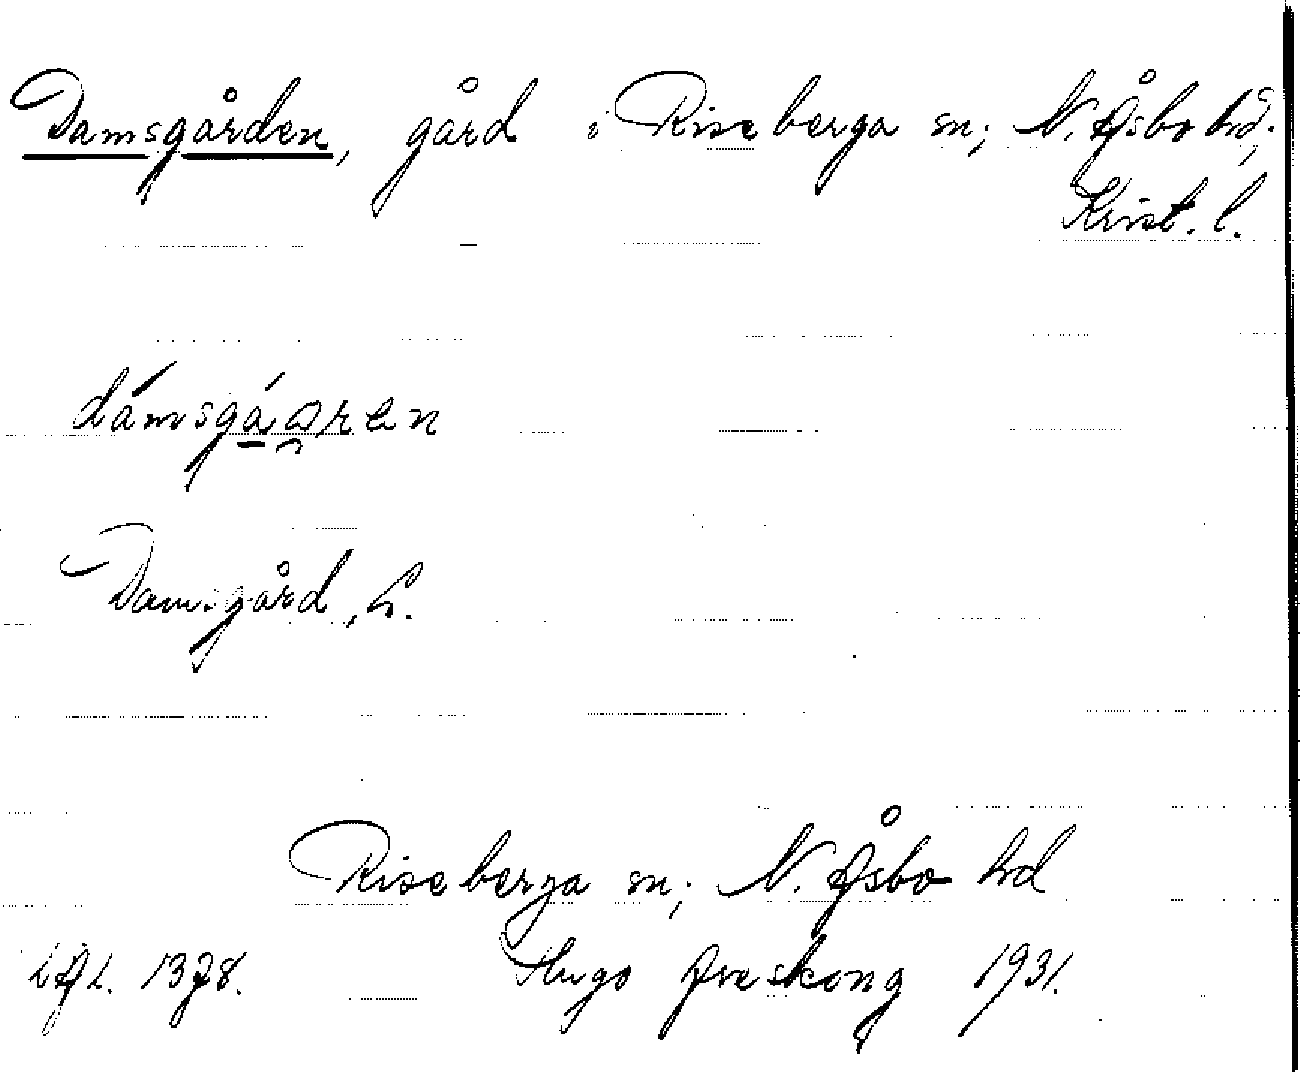 Damsgården, gård i Riseberga sn; N. Åsbo hd;
Krist. l.
dámsgáɷren
Damsgård, L.
Riseberga sn; N. Åsbo hd
1378.
Hugo Areskoug 1931.